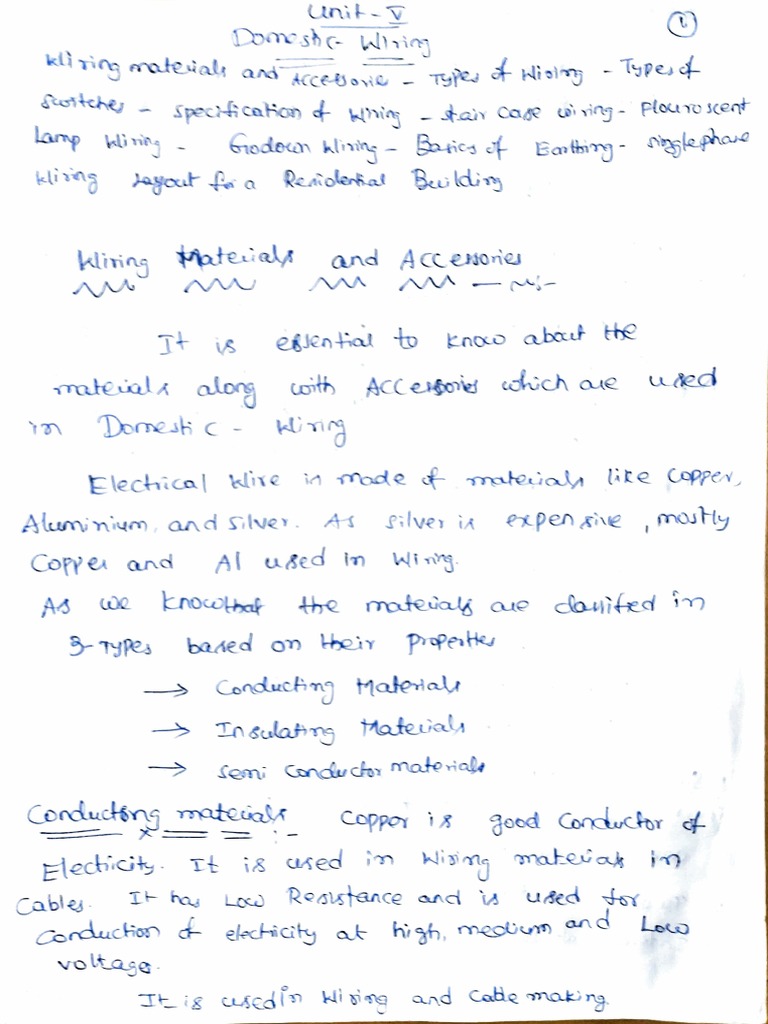 Unit - V
1
Domestic - Wiring
Wiring materials and Accessorie - Types of Wiring - Types of
switches - specification of Wiring - stair case wiring - Flouroscent
Lamp Wiring - Godown Wiring - Basics of Earthing - single phase
Wiring Layout for a Residential Building
Wiring Materials and Accessories
It is essential to know about the
materials along with Accessories which are used
in Domestic - Wiring
Electrical Wire is made of materials like copper,
Aluminium, and silver. As silver is expensive, mostly
Copper and Al used in Wiring.
As we know that the materials are classified in
3-Types based on their properties
→ Conducting Materials
→ Insulating Materials
→ Semi conductor materials
Conducting materials :- Copper is good conductor of
Electricity. It is used in Wiring materials in
Cables. It has Low Resistance and is used for
conduction of electricity at high, medium and Low
voltages.
It is used in Wiring and Cable making.